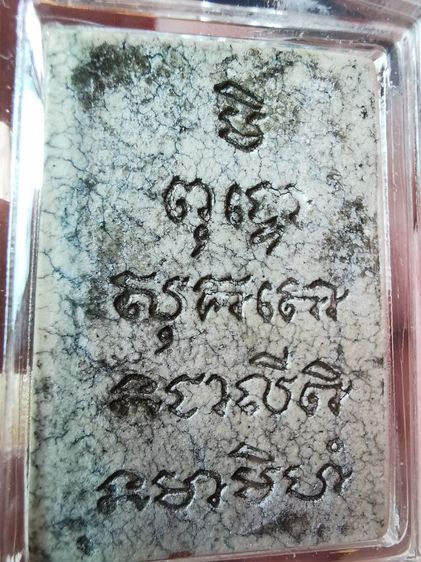 មិ
ពុទ្ធោ
សុគតោ
នជាលីតិ
នមាមិហំ